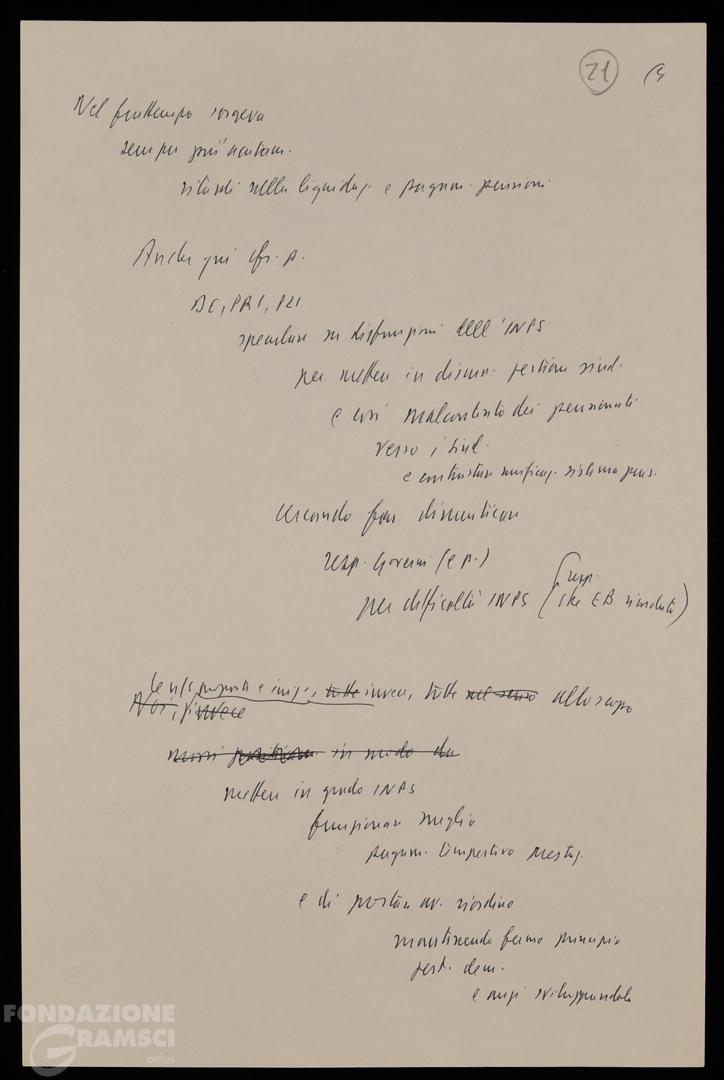 21
Nel frattempo sorgeva
sempre più acutam.
ritardi nella liquidaz. e pagam. pensioni
Anche qui cfr. p.
DC, PRI, PLI
speculare su disfunzioni dell'INPS
per mettere in discuss. gestione sind.
e così malcontento dei pensionati
verso i sind.
e contrastare unificaz. sistema pens.
cercando far dimenticare
resp. Governi (e p.)
resp.
per difficoltà INPS (che EB ricorderà)
le ns/ proposte e iniz., tutte invece, tutte nel senso allo scopo
Noi, invece
mossi in modo da
mettere in grado INPS
funzionare meglio
pagam. tempestivo prestaz.
e di portare av. riordino
mantenendo fermo principio
gest. dem.
e anzi sviluppandola
FONDAZIONE
GRAMSCI
onlus